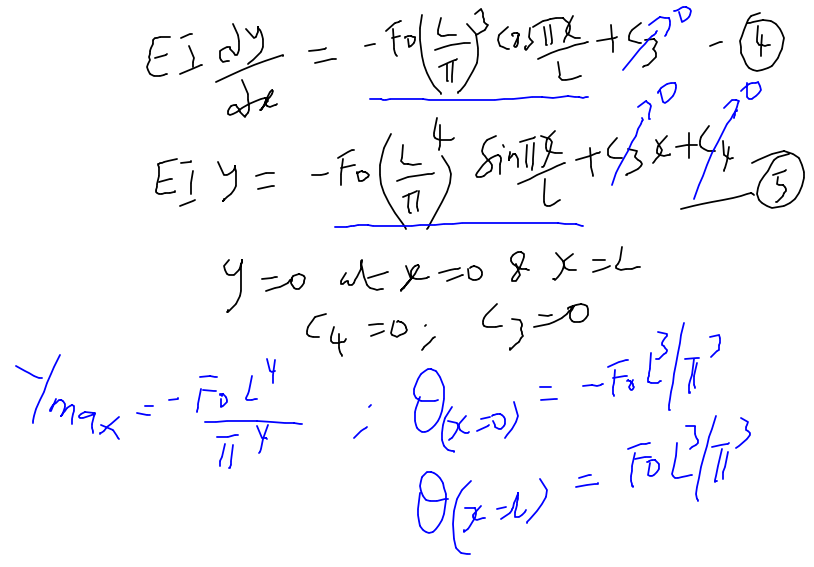 EI dy/dx = -F0(L/π)^3 cos πx/L + C3→0 - ④
EI y = -F0(L/π)^4 sin πx/L + C3→0 x + C4→0 - ⑤
y=0 at x=0 & x=L
C4=0; C3=0
Ymax = -F0 L^4/π^4 ; θ(x=0) = -F0 L^3/π^3
θ(x=L) = F0 L^3/π^3